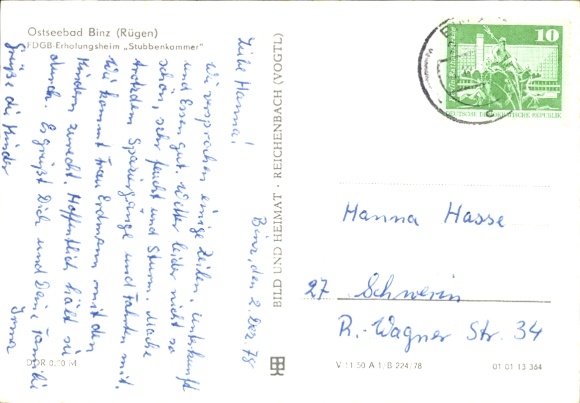 Ostseebad Binz (Rügen)
FDGB-Erholungsheim „Stubbenkammer"
Binz, den 2. Dez 78
Liebe Hanna!
Wie versprochen einige Zeilen. Unterkunft
und Essen gut. Wetter leider nicht so
schön, sehr feucht und Sturm. Mache
trotzdem Spaziergänge und Fahrten mit.
Wie kommt Frau Erdmann mit den
Kindern zurecht. Hoffentlich hält sie
durch. Es grüßt Dich und Deine Familie
Grüße die Kinder
Irma
DDR 0,20 M
BILD UND HEIMAT · REICHENBACH (VOGTL)
10
DEUTSCHE DEMOKRATISCHE REPUBLIK
Hanna Hasse
27 Schwerin
R.-Wagner Str. 34
V 11 50 A 1/B 224/78
01 01 13 364